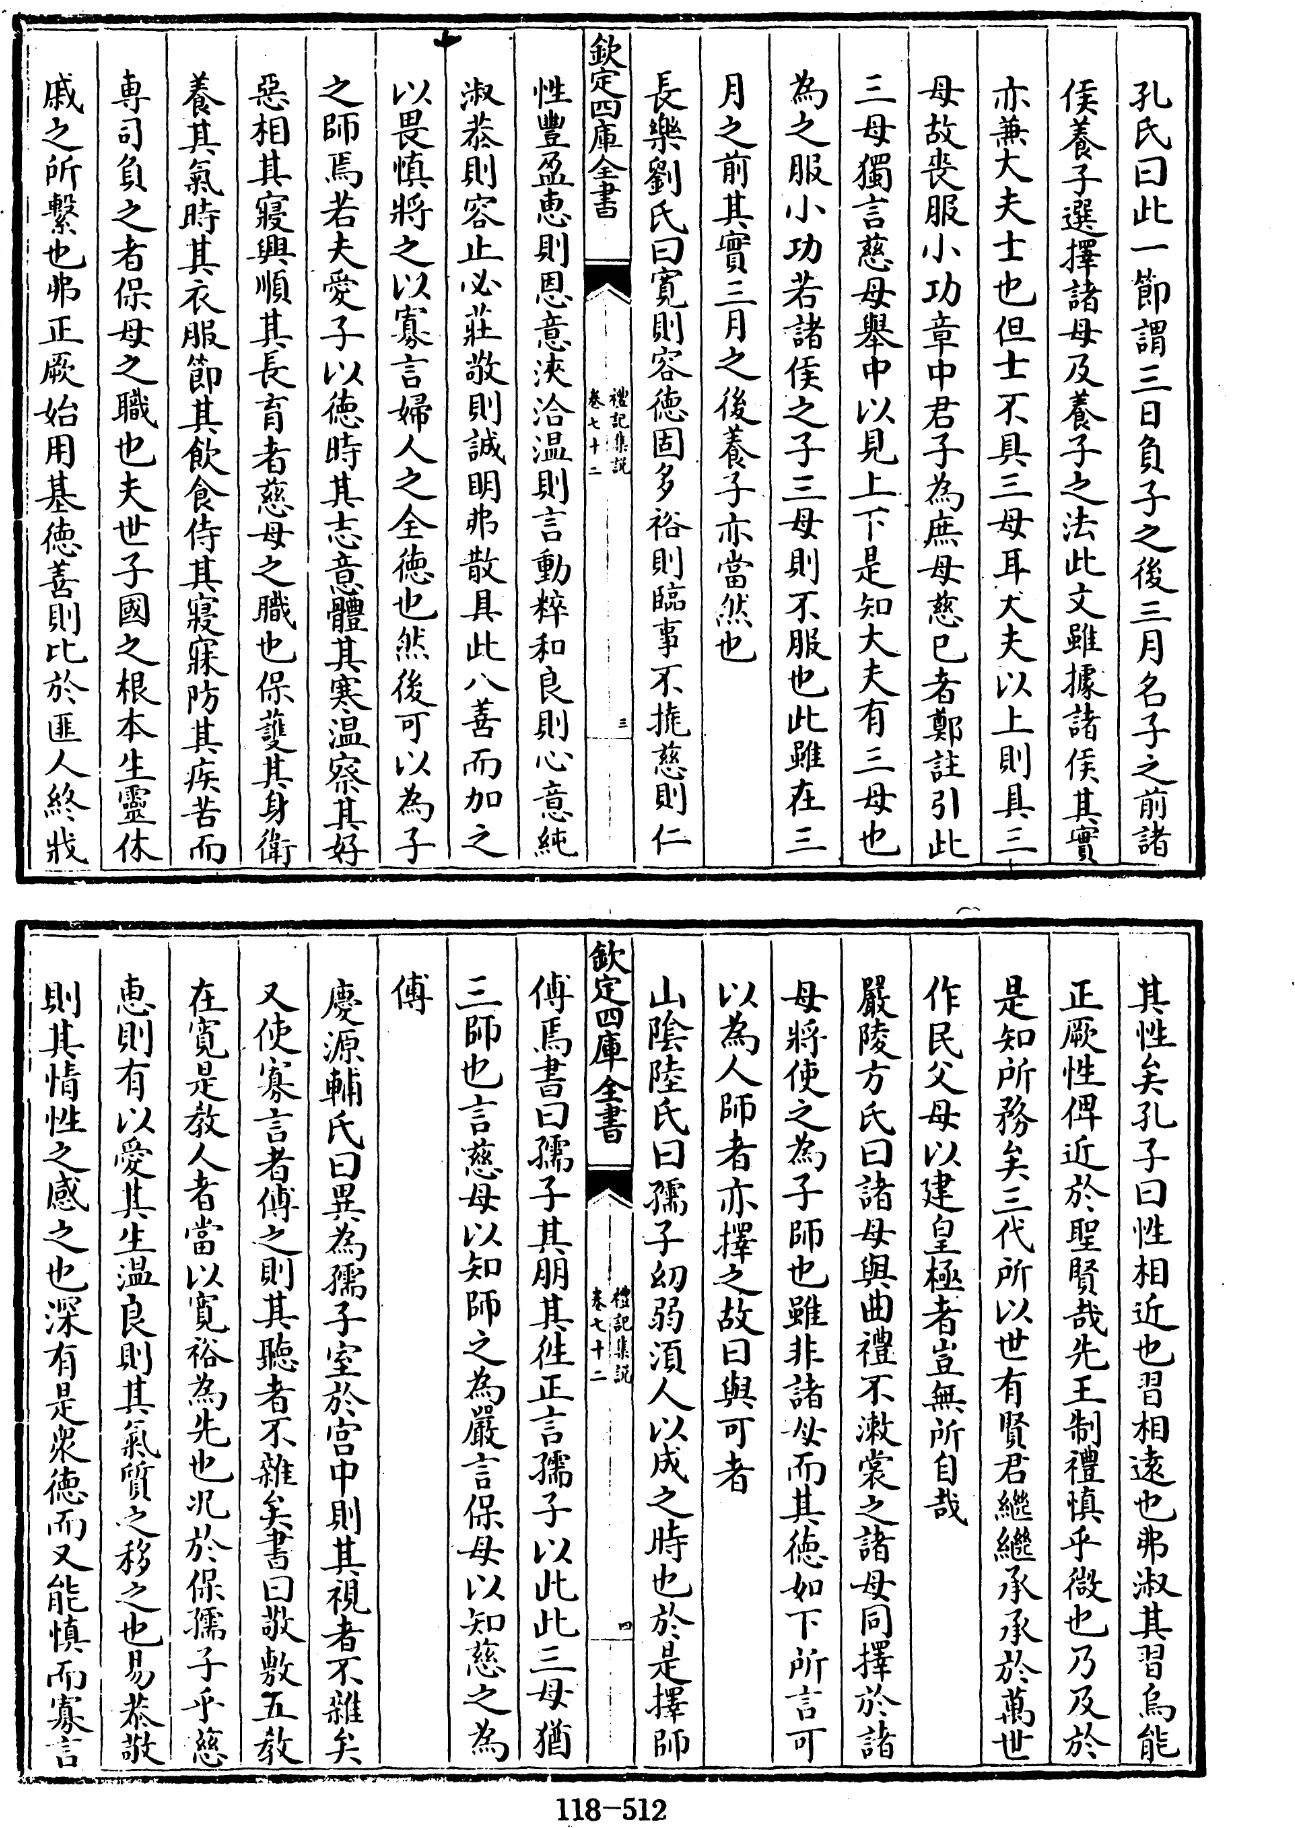 孔氏曰此一節謂三日負子之後三月名子之前諸
侯養子選擇諸母及養子之法此文雖據諸侯其實
亦兼大夫士也但士不具三母耳大夫以上則具三
母故喪服小功章中君子為庶母慈已者鄭註引此
三母獨言慈母舉中以見上下是知大夫有三母也
為之服小功若諸侯之子三母則不服也此雖在三
月之前其實三月之後養子亦當然也
長樂劉氏曰寛則容徳固多裕則臨事不撓慈則仁
欽定四庫全書
禮記集説
卷七十二
三
性豐盈恵則恩意浹洽温則言動粹和良則心意純
淑恭則容止必莊敬則誠明弗散具此八善而加之
以畏慎將之以寡言婦人之全徳也然後可以為子
之師焉若夫愛子以徳時其志意體其寒温察其好
惡相其寢興順其長育者慈母之職也保護其身衛
養其氣時其衣服節其飲食侍其寢寐防其疾苦而
専司負之者保母之職也夫世子國之根本生靈休
戚之所繫也弗正厥始用基徳善則比於匪人終戕
其性矣孔子曰性相近也習相遠也弗淑其習烏能
正厥性俾近於聖賢哉先王制禮慎乎微也乃及於
是知所務矣三代所以世有賢君繼繼承承於萬世
作民父母以建皇極者豈無所自哉
嚴陵方氏曰諸母與曲禮不漱裳之諸母同擇於諸
母將使之為子師也雖非諸母而其徳如下所言可
以為人師者亦擇之故曰與可者
山陰陸氏曰孺子幼弱湏人以成之時也於是擇師
欽定四庫全書
禮記集説
卷七十二
四
傅焉書曰孺子其朋其徃正言孺子以此此三母猶
三師也言慈母以知師之為嚴言保母以知慈之為
傅
慶源輔氏曰異為孺子室於宫中則其視者不雜矣
又使寡言者傅之則其聽者不雜矣書曰敬敷五教
在寛是教人者當以寛裕為先也况於保孺子乎慈
恵則有以愛其生温良則其氣質之移之也易恭敬
則其情性之感之也深有是衆徳而又能慎而寡言
118-512